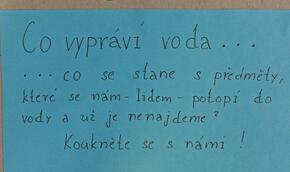 Co vypráví voda ...
... co se stane s předměty,
které se nám - lidem - potopí do
vody a už je nenajdeme?
Koukněte se s námi!